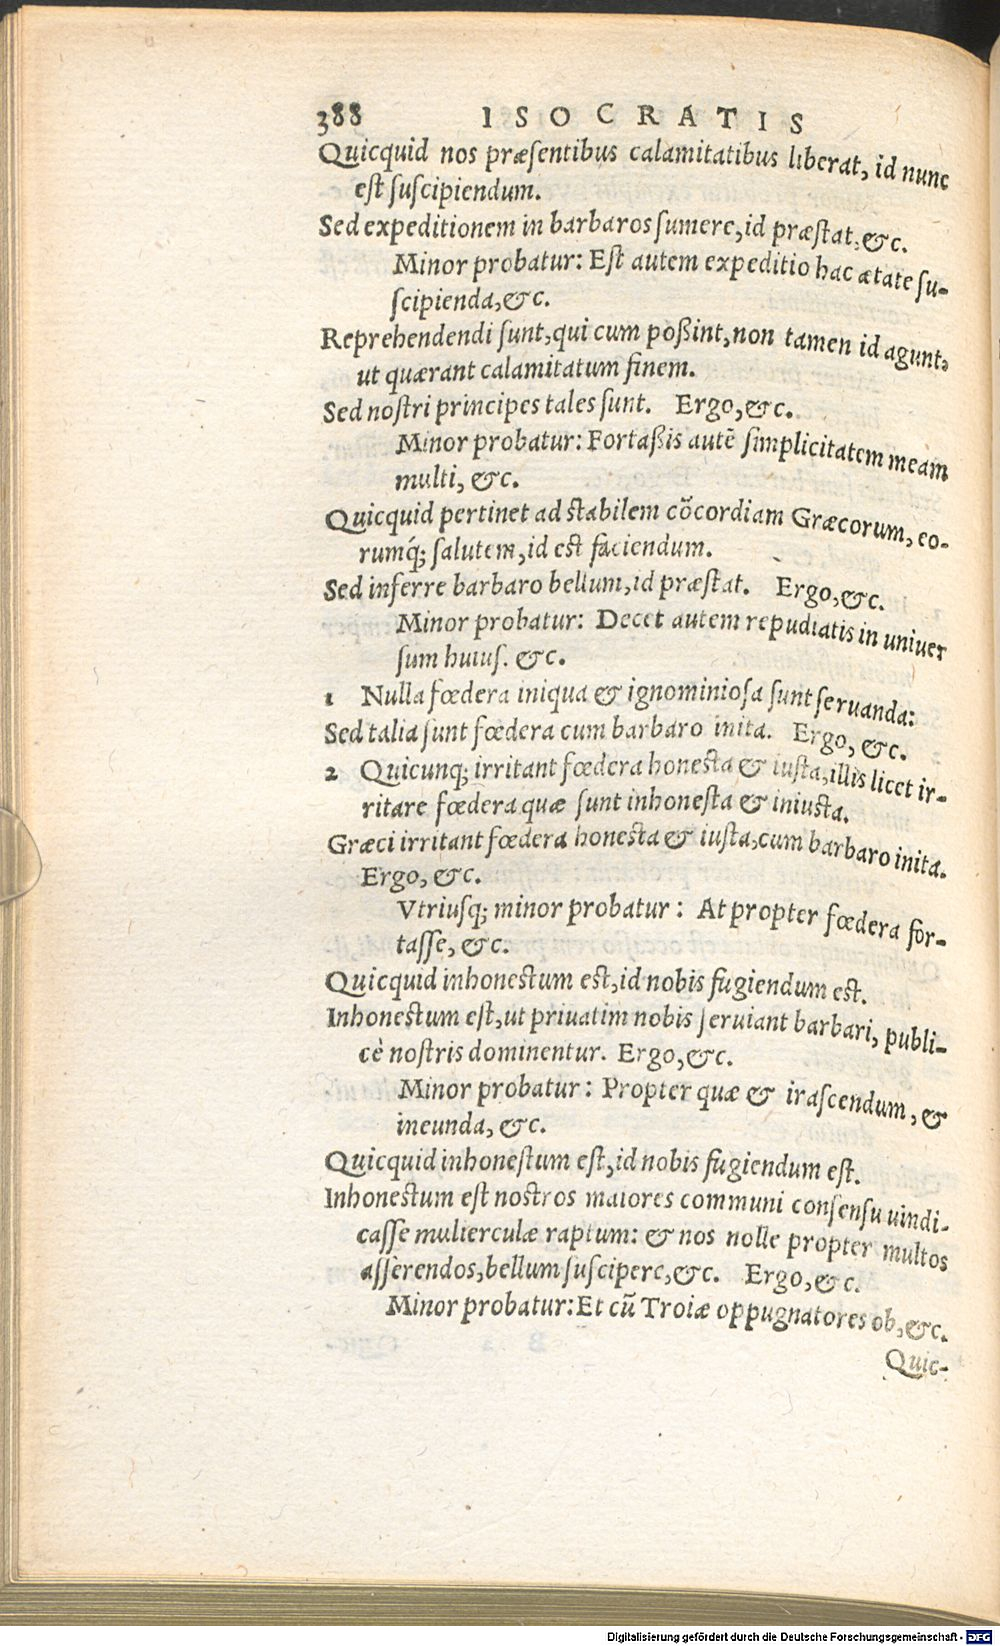 388 ISOCRATIS
Quicquid nos præsentibus calamitatibus liberat, id nunc
est suscipiendum.
Sed expeditionem in barbaros sumere, id præstat, &c.
Minor probatur: Est autem expeditio hac ætate su-
scipienda, &c.
Reprehendendi sunt, qui cum poßint, non tamen id agunt,
ut quærant calamitatum finem.
Sed nostri principes tales sunt. Ergo, &c.
Minor probatur: Fortaßis autē simplicitatem meam
multi, &c.
Quicquid pertinet ad stabilem cōcordiam Græcorum, eo-
rumq́; salutem, id est faciendum.
Sed inferre barbaro bellum, id præstat. Ergo, &c.
Minor probatur: Decet autem repudiatis in univer
sum huius. &c.
1 Nulla fœdera iniqua & ignominiosa sunt seruanda:
Sed talia sunt fœdera cum barbaro inita. Ergo, &c.
2 Quicunq; irritant fœdera honesta & iusta, illis licet ir-
ritare fœdera quæ sunt inhonesta & iniusta.
Græci irritant fœdera honesta & iusta, cum barbaro inita.
Ergo, &c.
Vtriusq; minor probatur: At propter fœdera for-
tasse, &c.
Quicquid inhonestum est, id nobis fugiendum est.
Inhonestum est, ut priuatim nobis seruiant barbari, publi-
cè nostris dominentur. Ergo, &c.
Minor probatur: Propter quæ & irascendum, &
ineunda, &c.
Quicquid inhonestum est, id nobis fugiendum est.
Inhonestum est nostros maiores communi consensu uindi-
casse mulierculæ raptum: & nos nolle propter multos
asserendos, bellum suscipere, &c. Ergo, &c.
Minor probatur: Et cū Troiæ oppugnatores ob, &c.
Quic-
Digitalisierung gefördert durch die Deutsche Forschungsgemeinschaft - DFG